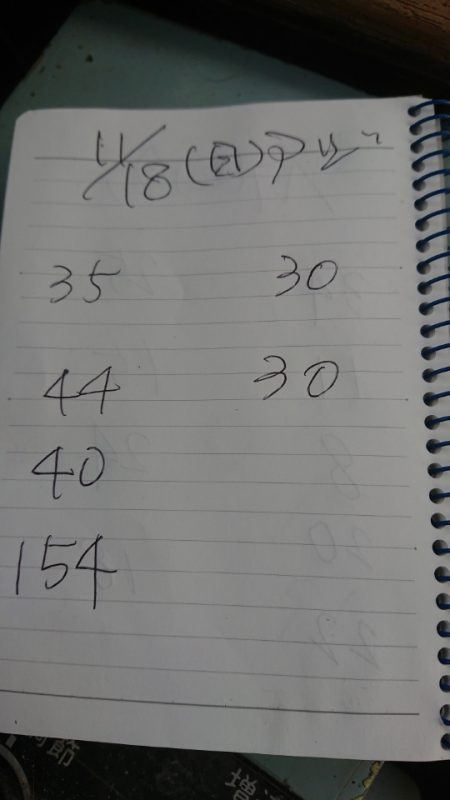 11/18 (日)
35 30
44 30
40
154
節
増